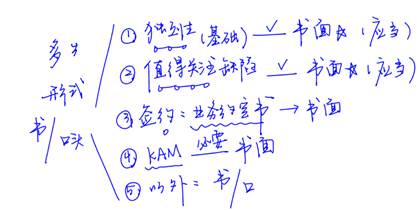 多少
形式
书/口头
① 独立性(基础) ✓ 书面(应当)
② 值得关注缺陷 ✓ 书面(应当)
③ 签约:业务约定书→书面
④ KAM 必要 书面
⑤ 以外:书/口